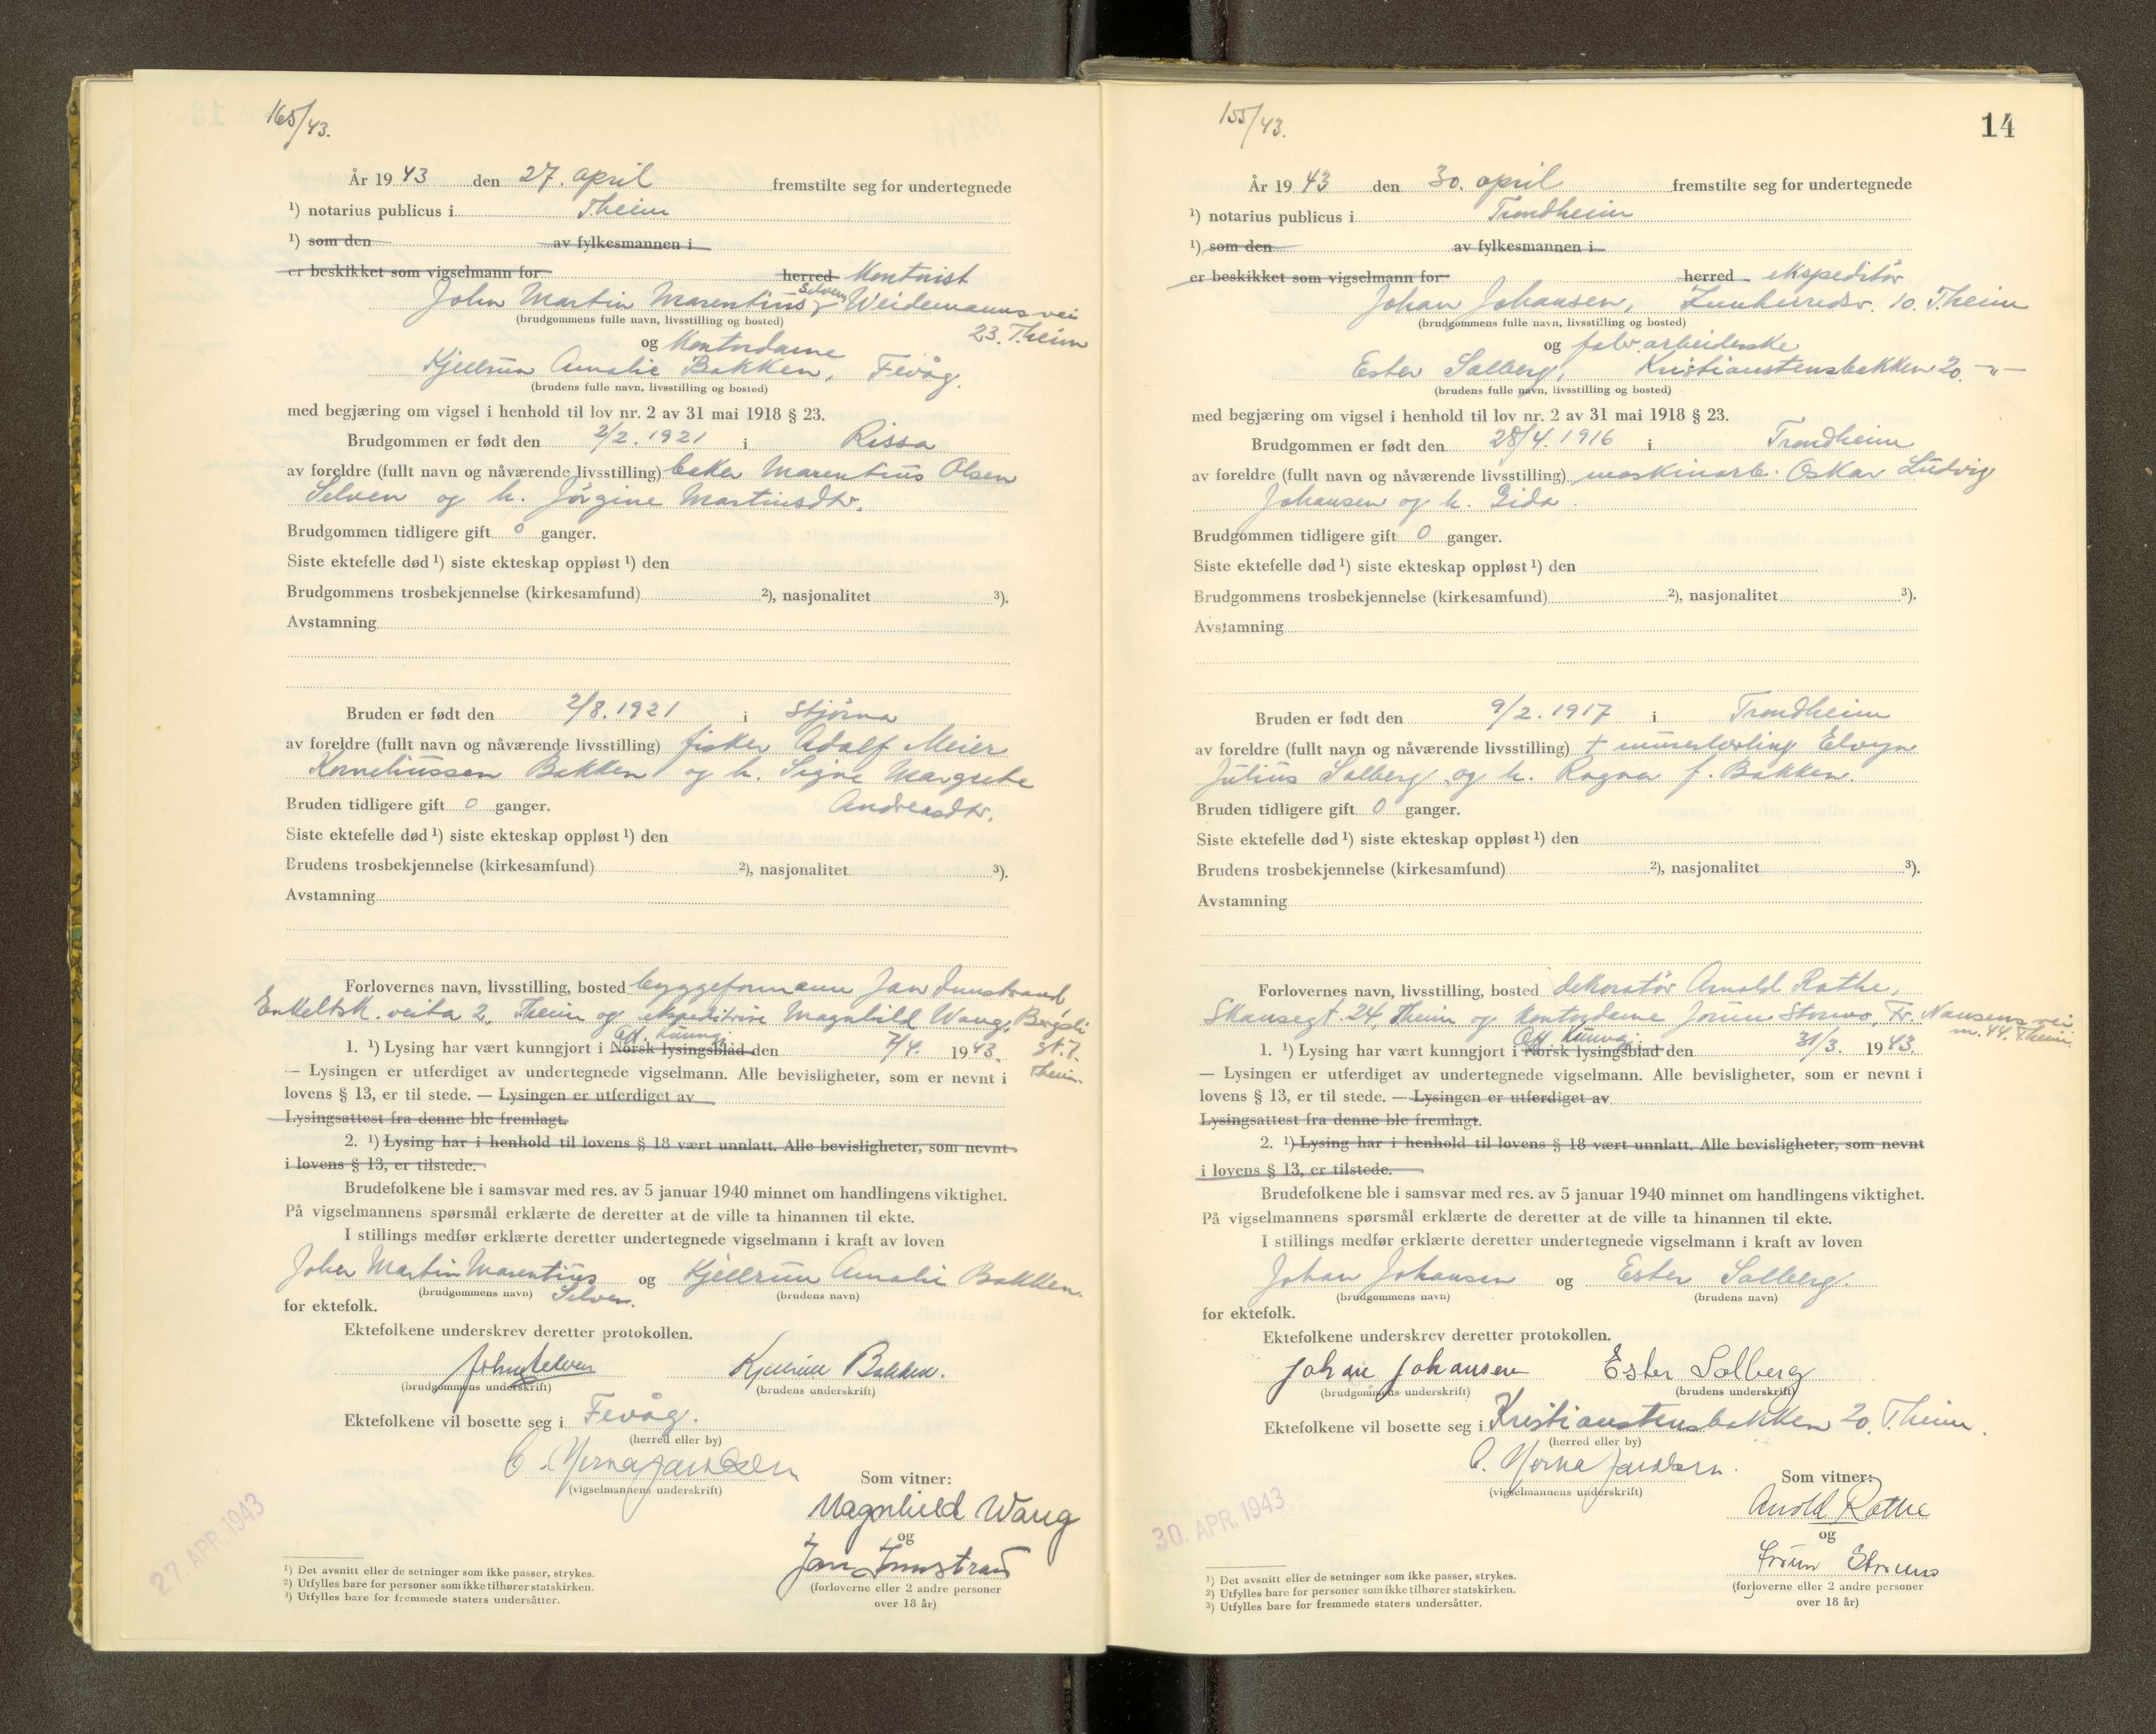 165/43.
År 19 43 den 27. april fremstilte seg for undertegnede
¹) notarius publicus i Theim
¹) som den av fylkesmannen i
er beskikket som vigselmann for herred Kontorist
John Martin Marentius Selven, Weidemannsvei
(brudgommens fulle navn, livsstilling og bosted) 23. Theim
og Kontordame
Kjellrun Amalie Bakken, Fevåg.
(brudens fulle navn, livsstilling og bosted)
med begjæring om vigsel i henhold til lov nr. 2 av 31 mai 1918 § 23.
Brudgommen er født den 2/2. 1921 i Rissa
av foreldre (fullt navn og nåværende livsstilling) baker Marentius Olsen
Selven og h. Jørgine Martinsdtr.
Brudgommen tidligere gift 0 ganger.
Siste ektefelle død ¹) siste ekteskap oppløst ¹) den
Brudgommens trosbekjennelse (kirkesamfund) ²), nasjonalitet ³).
Avstamning
Bruden er født den 2/8. 1921 i Stjørna
av foreldre (fullt navn og nåværende livsstilling) fisker Adolf Meier
Korneliussen Bakken og h. Signe Margrete
Bruden tidligere gift 0 ganger. Andreasdtr.
Siste ektefelle død ¹) siste ekteskap oppløst ¹) den
Brudens trosbekjennelse (kirkesamfund) ²), nasjonalitet ³).
Avstamning
Forlovernes navn, livsstilling, bosted byggeformann Jan Innstrand,
Enkeltsk. veita 2, Theim og ekspeditrise Magnhild Wang, Bergsli
Off. kunngj.
1. ¹) Lysing har vært kunngjort i Norsk lysingsblad den 7/4. 1943. gt. 7.
— Lysingen er utferdiget av undertegnede vigselmann. Alle bevisligheter, som er nevnt i Theim.
lovens § 13, er til stede. — Lysingen er utferdiget av
Lysingsattest fra denne ble fremlagt.
2. ¹) Lysing har i henhold til lovens § 18 vært unnlatt. Alle bevisligheter, som nevnt
i lovens § 13, er tilstede.
Brudefolkene ble i samsvar med res. av 5 januar 1940 minnet om handlingens viktighet.
På vigselmannens spørsmål erklærte de deretter at de ville ta hinannen til ekte.
I stillings medfør erklærte deretter undertegnede vigselmann i kraft av loven
John Martin Marentius og Kjellrun Amalie Bakken.
(brudgommens navn) Selven. (brudens navn)
for ektefolk.
Ektefolkene underskrev deretter protokollen.
John Selven Kjellrun Bakken.
(brudgommens underskrift) (brudens underskrift)
Ektefolkene vil bosette seg i Fevåg.
(herred eller by)
(vigselmannens underskrift)
Som vitner:
Magnhild Wang
og
Jan Innstrand
(forloverne eller 2 andre personer
over 18 år)
27. APR. 1943
¹) Det avsnitt eller de setninger som ikke passer, strykes.
²) Utfylles bare for personer som ikke tilhører statskirken.
³) Utfylles bare for fremmede staters undersåtter.
14
155/43.
År 19 43 den 30. april fremstilte seg for undertegnede
¹) notarius publicus i Trondheim
¹) som den av fylkesmannen i
er beskikket som vigselmann for herred ekspeditør
Johan Johansen, Innherredsv. 10. Theim
(brudgommens fulle navn, livsstilling og bosted)
og fabr.arbeiderske
Ester Solberg, Kristianstensbakken 20. –"–
(brudens fulle navn, livsstilling og bosted)
med begjæring om vigsel i henhold til lov nr. 2 av 31 mai 1918 § 23.
Brudgommen er født den 28/4. 1916 i Trondheim
av foreldre (fullt navn og nåværende livsstilling) maskinarb. Oskar Ludvig
Johansen og h. Gida.
Brudgommen tidligere gift 0 ganger.
Siste ektefelle død ¹) siste ekteskap oppløst ¹) den
Brudgommens trosbekjennelse (kirkesamfund) ²), nasjonalitet ³).
Avstamning
Bruden er født den 9/2. 1917 i Trondheim
av foreldre (fullt navn og nåværende livsstilling) † murerlærling Elvyn
Julius Solberg og h. Ragna f. Bakken.
Bruden tidligere gift 0 ganger.
Siste ektefelle død ¹) siste ekteskap oppløst ¹) den
Brudens trosbekjennelse (kirkesamfund) ²), nasjonalitet ³).
Avstamning
Forlovernes navn, livsstilling, bosted dekoratør Arnold Rathe,
Skansegt. 24, Theim og kontordame Jorun Fr. Nansens vei
Off. kunngj. nr. 44. Theim.
1. ¹) Lysing har vært kunngjort i Norsk lysingsblad den 31/3. 1943.
— Lysingen er utferdiget av undertegnede vigselmann. Alle bevisligheter, som er nevnt i
lovens § 13, er til stede. — Lysingen er utferdiget av
Lysingsattest fra denne ble fremlagt.
2. ¹) Lysing har i henhold til lovens § 18 vært unnlatt. Alle bevisligheter, som nevnt
i lovens § 13, er tilstede.
Brudefolkene ble i samsvar med res. av 5 januar 1940 minnet om handlingens viktighet.
På vigselmannens spørsmål erklærte de deretter at de ville ta hinannen til ekte.
I stillings medfør erklærte deretter undertegnede vigselmann i kraft av loven
Johan Johansen og Ester Solberg.
(brudgommens navn) (brudens navn)
for ektefolk.
Ektefolkene underskrev deretter protokollen.
Johan Johansen Ester Solberg
(brudgommens underskrift) (brudens underskrift)
Ektefolkene vil bosette seg i Kristianstensbakken 20. Theim.
(herred eller by)
(vigselmannens underskrift)
Som vitner:
Arnold Rathe
og
Jorun
(forloverne eller 2 andre personer
over 18 år)
30. APR. 1943
¹) Det avsnitt eller de setninger som ikke passer, strykes.
²) Utfylles bare for personer som ikke tilhører statskirken.
³) Utfylles bare for fremmede staters undersåtter.